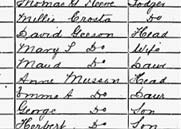 Thomas G Howe Lodger
Millie Crosta Do
David Geeson Head
Mary S Do Wife
Maud Do Daur
Anne Museen Head
Emma A Do Daur
George Do Son
Herbert Do Son